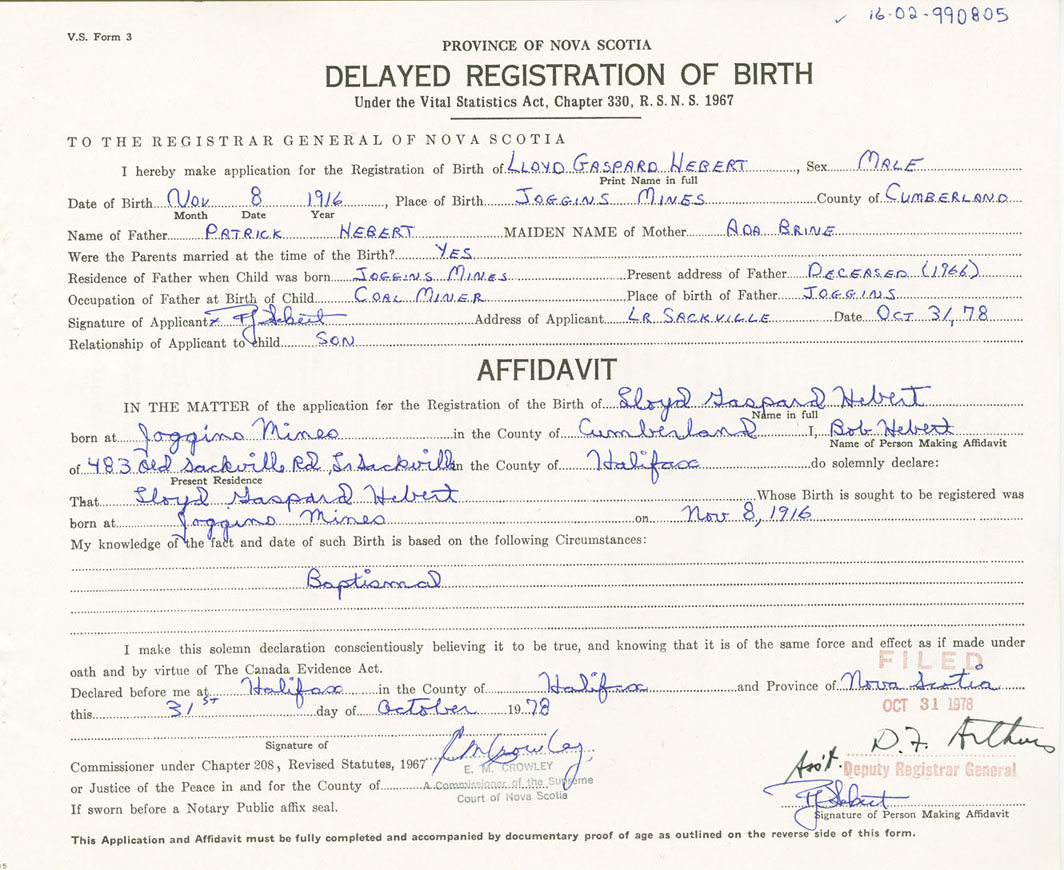 ✓ 16-02-990805
V.S. Form 3
PROVINCE OF NOVA SCOTIA
DELAYED REGISTRATION OF BIRTH
Under the Vital Statistics Act, Chapter 330, R.S.N.S. 1967
TO THE REGISTRAR GENERAL OF NOVA SCOTIA
I hereby make application for the Registration of Birth of LLOYD GASPARD HEBERT, Sex MALE
Print Name in full
Date of Birth NOV 8 1916, Place of Birth JOGGINS MINES County of CUMBERLAND
Month Date Year
Name of Father PATRICK HEBERT MAIDEN NAME of Mother ADA BRINE
Were the Parents married at the time of the Birth? YES
Residence of Father when Child was born JOGGINS MINES Present address of Father DECEASED (1966)
Occupation of Father at Birth of Child COAL MINER Place of birth of Father JOGGINS
Signature of Applicant x Hebert Address of Applicant LR SACKVILLE Date OCT 31, 78
Relationship of Applicant to child SON
AFFIDAVIT
IN THE MATTER of the application for the Registration of the Birth of Lloyd Gaspard Hebert
Name in full
born at Joggins Mines in the County of Cumberland I, Bob Hebert
Name of Person Making Affidavit
of 483 Old Sackville Rd, Lr Sackville in the County of Halifax do solemnly declare:
Present Residence
That Lloyd Gaspard Hebert Whose Birth is sought to be registered was
born at Joggins Mines on Nov 8, 1916
My knowledge of the fact and date of such Birth is based on the following Circumstances:
Baptismal
I make this solemn declaration conscientiously believing it to be true, and knowing that it is of the same force and effect as if made under
oath and by virtue of The Canada Evidence Act.
FILED
Declared before me at Halifax in the County of Halifax and Province of Nova Scotia
this 31st day of October 1978
OCT 31 1978
Signature of
Commissioner under Chapter 208, Revised Statutes, 1967 Crowley
E. M. CROWLEY
D. F. Arthurs
Ass't. Deputy Registrar General
or Justice of the Peace in and for the County of
A Commissioner of the Supreme
Court of Nova Scotia
Hebert
If sworn before a Notary Public affix seal.
Signature of Person Making Affidavit
This Application and Affidavit must be fully completed and accompanied by documentary proof of age as outlined on the reverse side of this form.